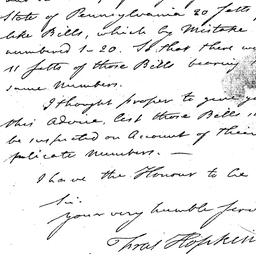 State of Pennsylvania 20 setts
like Bills, which by Mistake
numbered 1-20. So that there w
11 setts of those Bills bearing t
same Numbers.
I thought proper to give y
this Advice, lest those Bills s
be suspected on Account of their
plicate Numbers. —
I have the Honour to be
Sir.
your very humble ser
Thos Hopkin